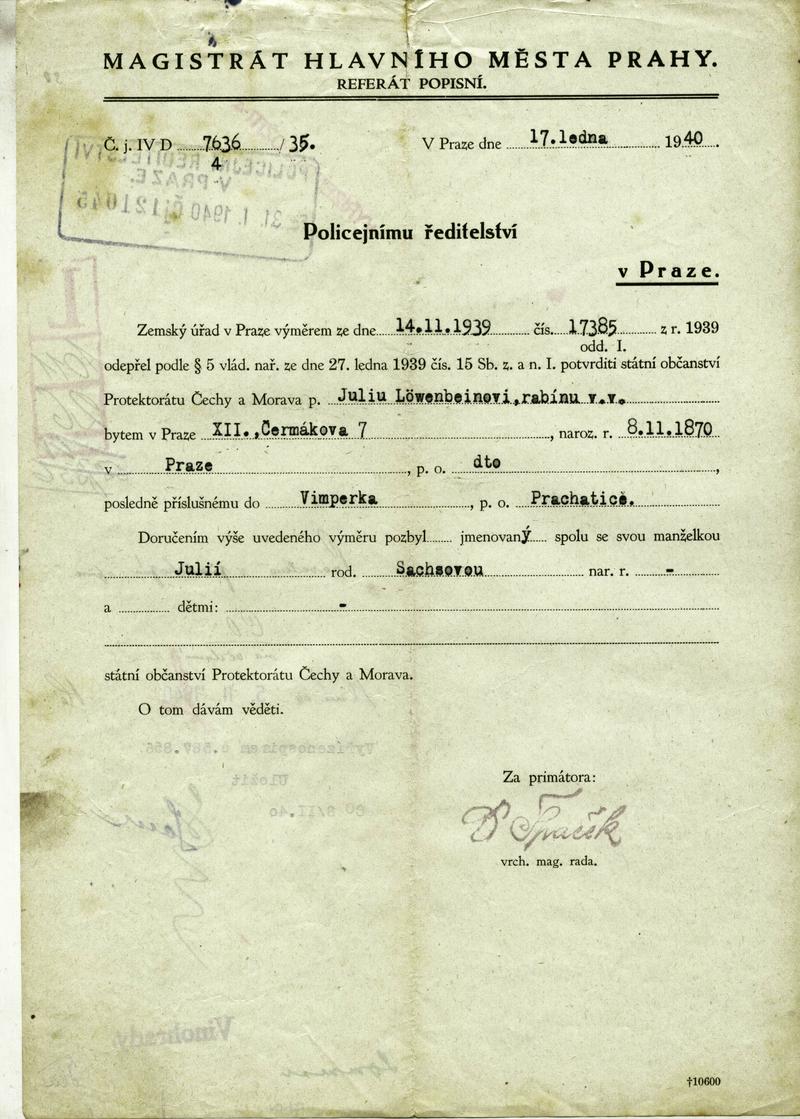 MAGISTRÁT HLAVNÍHO MĚSTA PRAHY.
REFERÁT POPISNÍ.
Č. j. IV D ........7636........../ 35. V Praze dne .....17.ledna................ 1940.....
4
POLICEJNÍ ŘEDITELSTVÍ
V PRAZE.
31. I. 1940 Č j 121045
Policejnímu ředitelství
v Praze.
Zemský úřad v Praze výměrem ze dne....14.11.1939.......... čís....17385.......... z r. 1939
odd. I.
odepřel podle § 5 vlád. nař. ze dne 27. ledna 1939 čís. 15 Sb. z. a n. I. potvrditi státní občanství
Protektorátu Čechy a Morava p. ..Juliu Löwenbeinovi,rabínu v.v........................
bytem v Praze ..XII.,Čermákova 7............................................., naroz. r. 8.11.1870
v ............Praze................................................., p. o. .......dto.............................................,
posledně příslušnému do .........Vimperka........................, p. o. ....Prachatice.....................
Doručením výše uvedeného výměru pozbyl........ jmenovaný..... spolu se svou manželkou
..................Julií.......................... rod. .........Sachsovou......................... nar. r. ........-...........
a ................ dětmi: .............................-.............................................................................
státní občanství Protektorátu Čechy a Morava.
O tom dávám věděti.
Vyřízeno spisem č.
Uložit
Za primátora:
vrch. mag. rada.
Vinohrady.
†10600